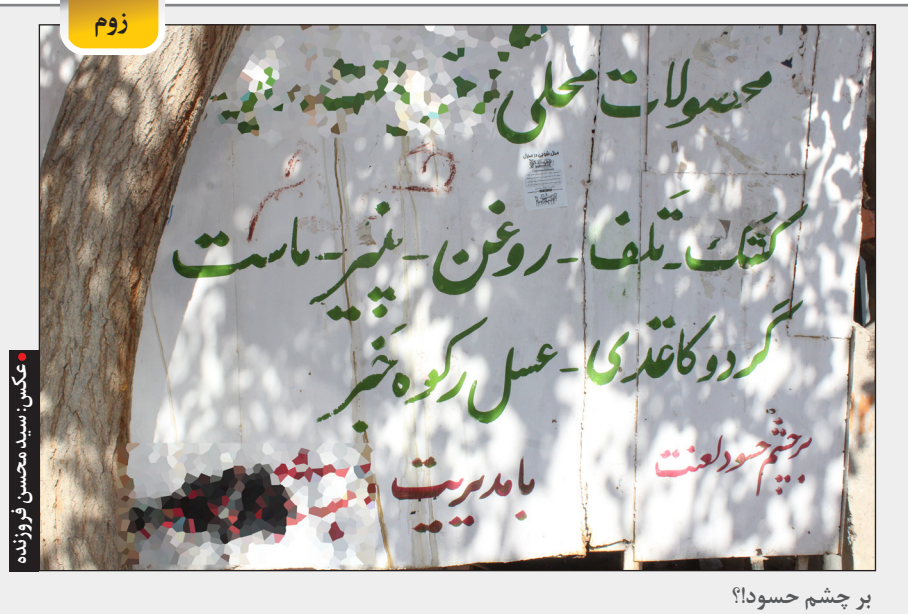 زوم
محصولات محلی
کَتَک - تَلف - روغن - پنیر - ماست
گردو کاغذی - عسل رکوه خَبر
بر چشم حسود لعنت
با مدیریت
عکس: سید محسن فروزنده
بر چشم حسود!؟